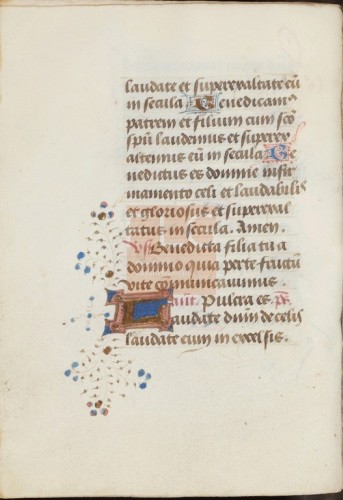 laudate et superexaltate eū
in secula Benedicam9
patrem et filium cum sc̄o
sp̄u laudemus et superex
altemus eū in secula Be
nedictus es domine in fir
mamento celi et laudabilis
et gloriosus et superexal
tatus in secula. Amen.
Benedicta filia tu a
domino quia per te fructū
vite cōmunicavimus.
ant. Pulcra es. ps.
Laudate dn̄m de celis
laudate eum in excelsis.